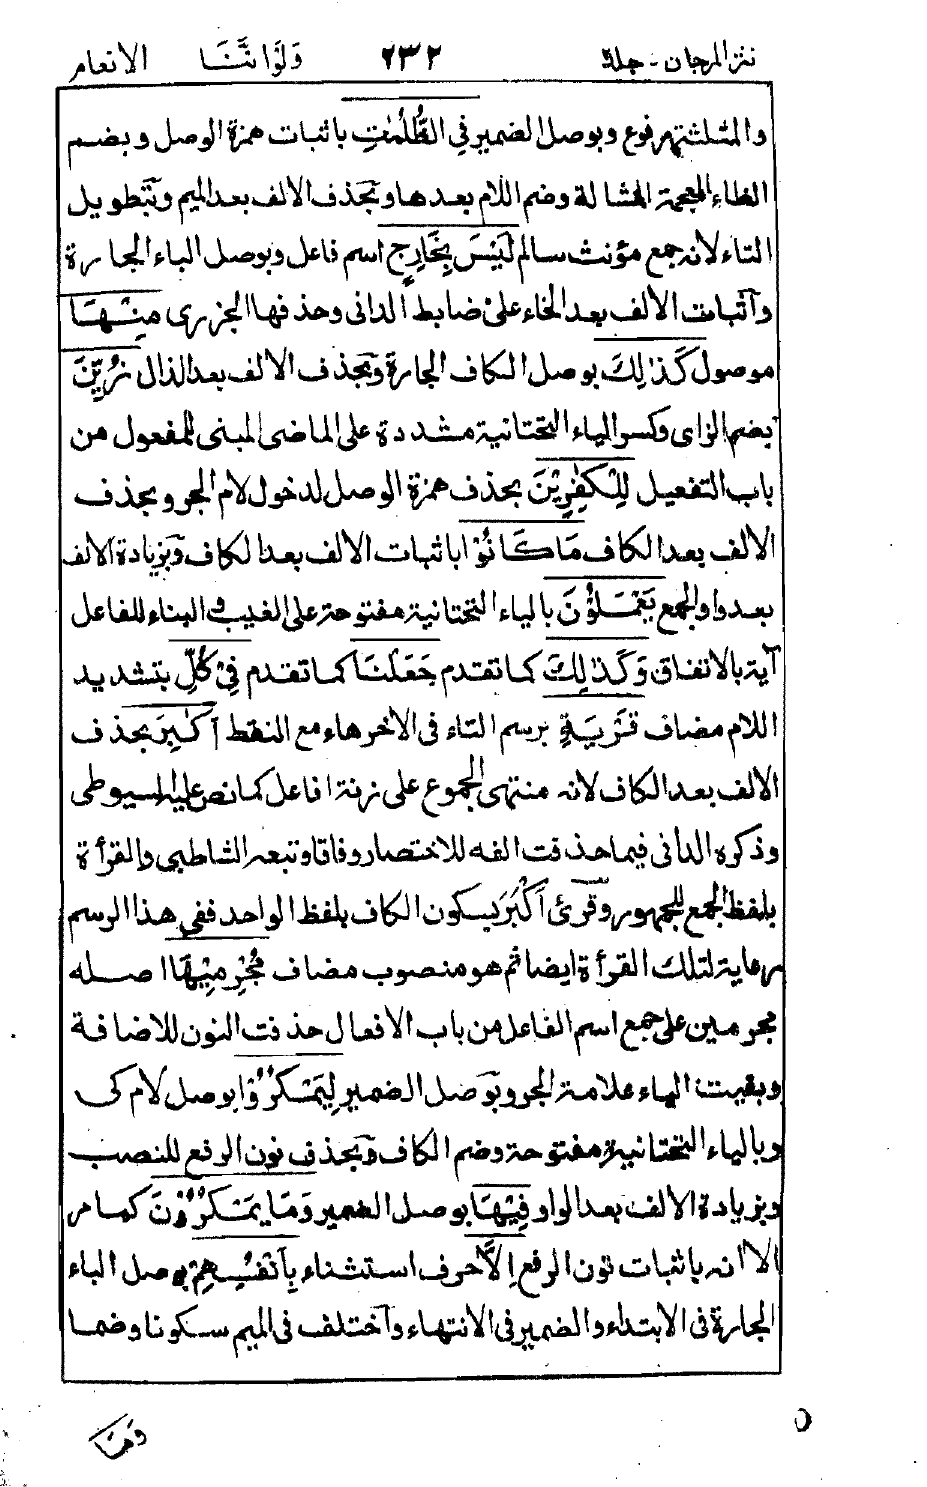 نثر المرجان - جلد ٢٣٢ وَلَوْ اَنَّنَا الانعام
والمثلثة مرفوع وبوصل الضمير فِي الظُّلُمٰتِ باثبات همزة الوصل وبضم
الظاء المعجمة المشالة وضم اللام بعدها وبحذف الالف بعد الميم وبتطويل
التاء لانه جمع مؤنث سالم لَيْسَ بِخَارِجٍ اسم فاعل وبوصل الباء الجارة
واثبات الالف بعد الخاء على ضابط الدانى وحذفها الجزرى مِنْهَا
موصول كَذٰلِكَ بوصل الكاف الجارة وبحذف الالف بعد الذال زُيِّنَ
بضم الزاى وكسر الياء التحتانية مشددة على الماضى المبنى للمفعول من
باب التفعيل لِلْكٰفِرِيْنَ بحذف همزة الوصل لدخول لام الجر وبحذف
الالف بعد الكاف مَا كَانُوْا باثبات الالف بعد الكاف وبزيادة الالف
بعد واو الجمع يَعْمَلُوْنَ بالياء التحتانية مفتوحة على الغيب والبناء للفاعل
آية بالاتفاق وَكَذٰلِكَ كما تقدم جَعَلْنَا كما تقدم فِيْ كُلِّ بتشديد
اللام مضاف قَرْيَةٍ برسم التاء فى الآخر هاء مع النقط اَكٰبِرَ بحذف
الالف بعد الكاف لانه منتهى الجموع على زنة افاعل كما نص عليه السيوطى
وذكره الدانى فيما حذفت الفه للاختصار وفاقا وتبعه الشاطبى والقرأة
بلفظ الجمع للجمهور وقرئ اَكْبَرَ بسكون الكاف بلفظ الواحد ففى هذا الرسم
رعاية لتلك القرأة ايضا ثم هو منصوب مضاف مُجْرِمِيْهَا اصله
مجرمين على جمع اسم الفاعل من باب الافعال حذفت النون للاضافة
وبقيت الياء علامة الجر وبوصل الضمير لِيَمْكُرُوْا بوصل لام كى
وبالياء التحتانية مفتوحة وضم الكاف وبحذف نون الرفع للنصب
وبزيادة الالف بعد الواو فِيْهَا بوصل الضمير وَمَا يَمْكُرُوْنَ كما مر
الا انه باثبات نون الرفع اِلَّا حرف استثناء بِاَنْفُسِهِمْ بوصل الباء
الجارة فى الابتداء والضمير فى الانتهاء واختلف فى الميم سكونا وضما
وَمَا